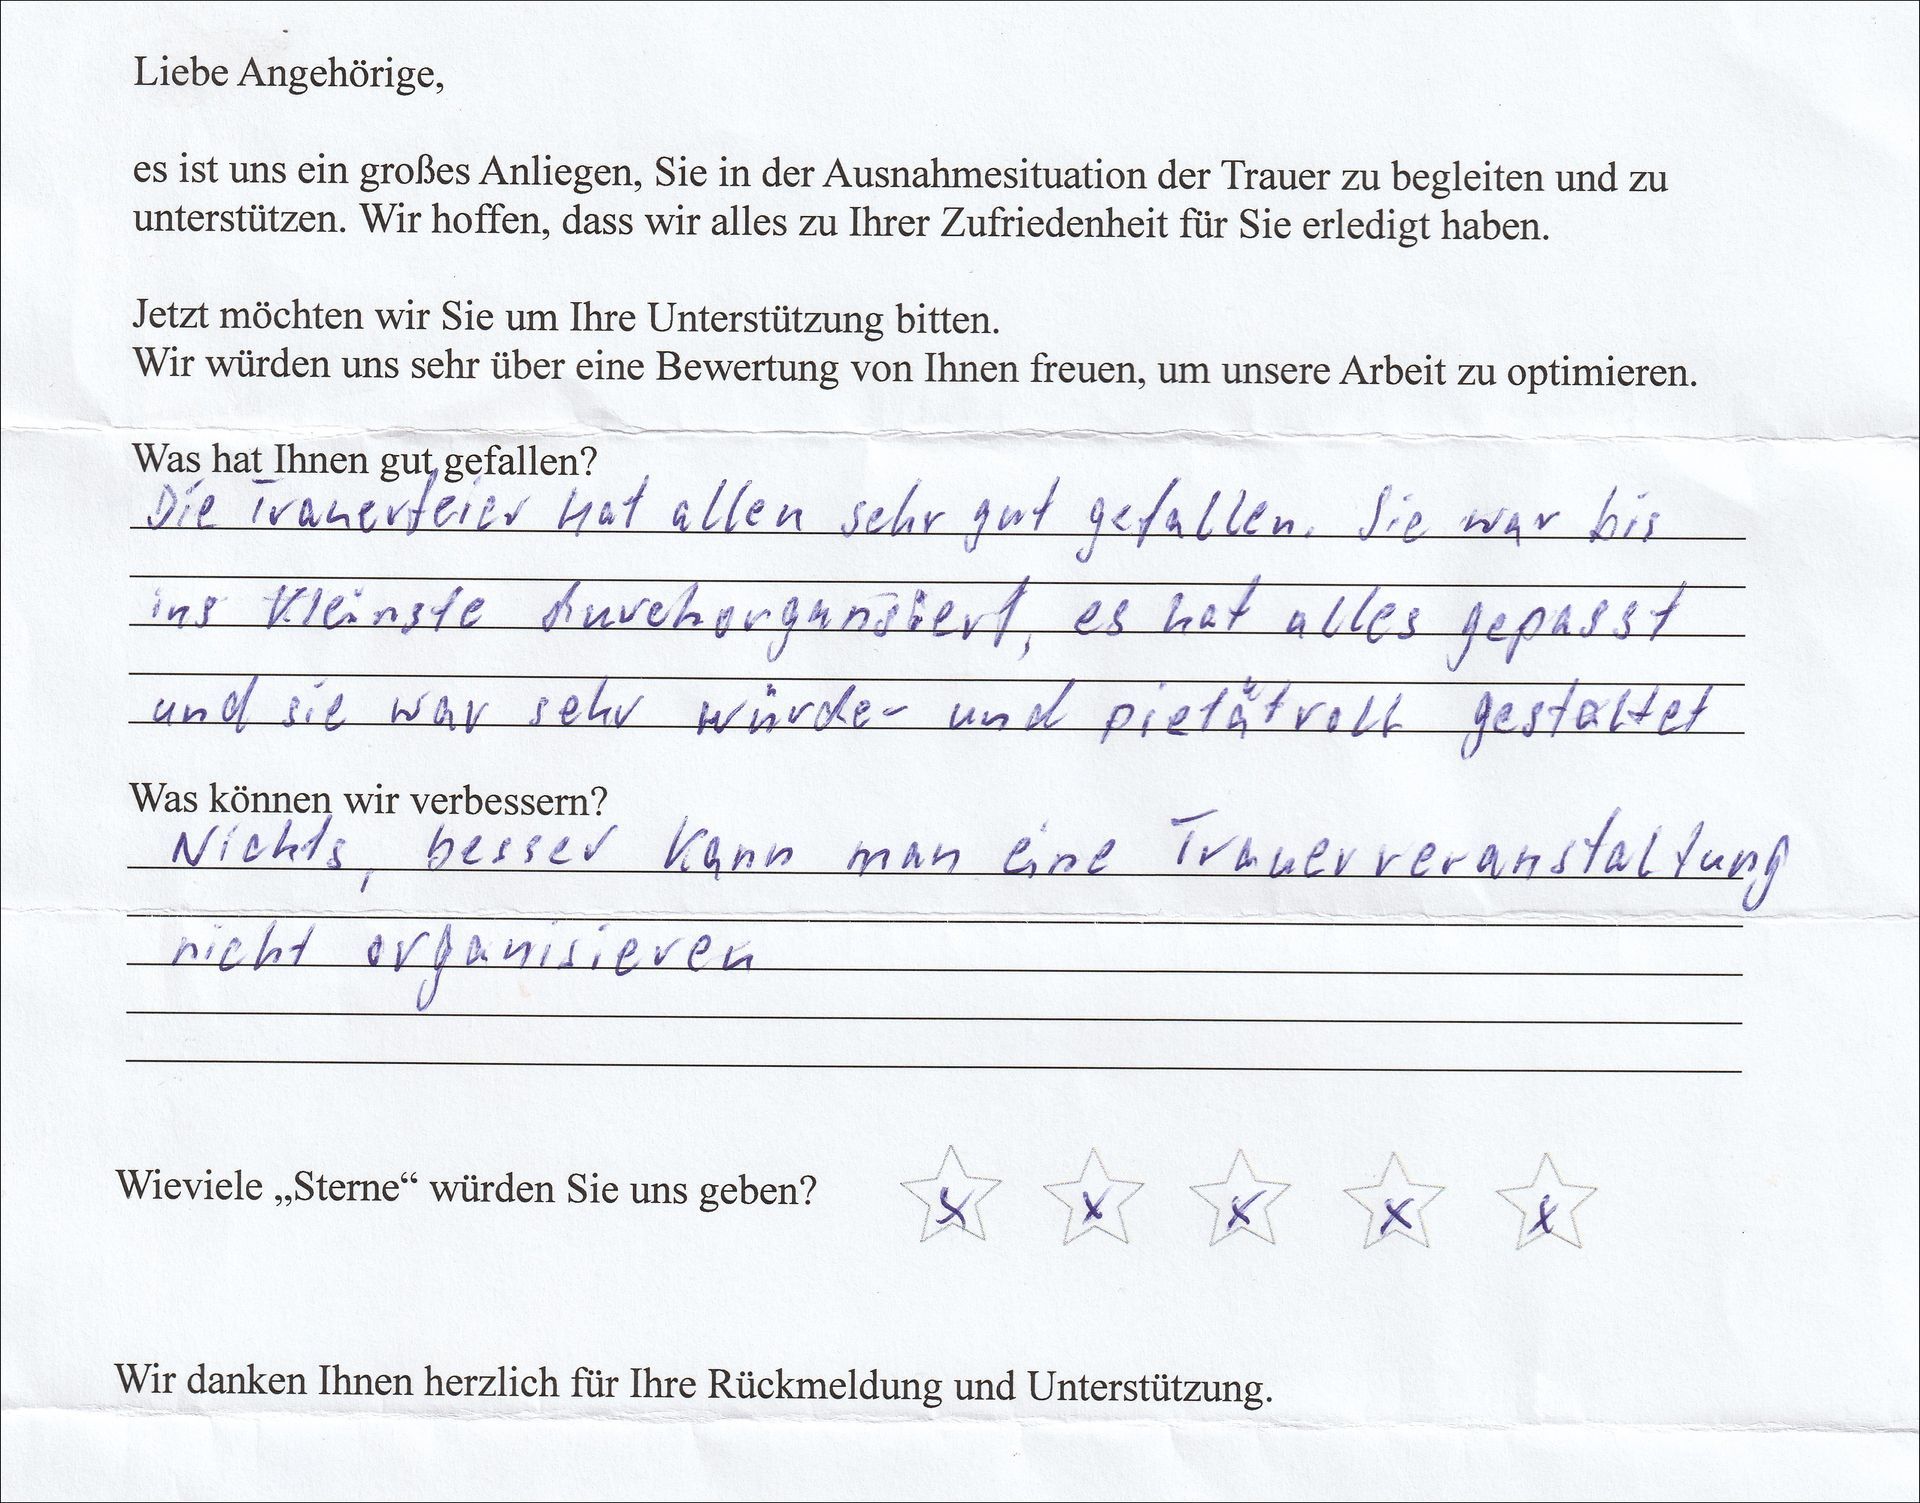 Liebe Angehörige,
es ist uns ein großes Anliegen, Sie in der Ausnahmesituation der Trauer zu begleiten und zu
unterstützen. Wir hoffen, dass wir alles zu Ihrer Zufriedenheit für Sie erledigt haben.
Jetzt möchten wir Sie um Ihre Unterstützung bitten.
Wir würden uns sehr über eine Bewertung von Ihnen freuen, um unsere Arbeit zu optimieren.
Was hat Ihnen gut gefallen?
Die Trauerfeier hat allen sehr gut gefallen. Sie war bis
ins Kleinste durchorganisiert, es hat alles gepasst
und sie war sehr würde- und pietätvoll gestaltet
Was können wir verbessern?
Nichts, besser kann man eine Trauerveranstaltung
nicht organisieren
Wieviele „Sterne“ würden Sie uns geben? x x x x x
Wir danken Ihnen herzlich für Ihre Rückmeldung und Unterstützung.